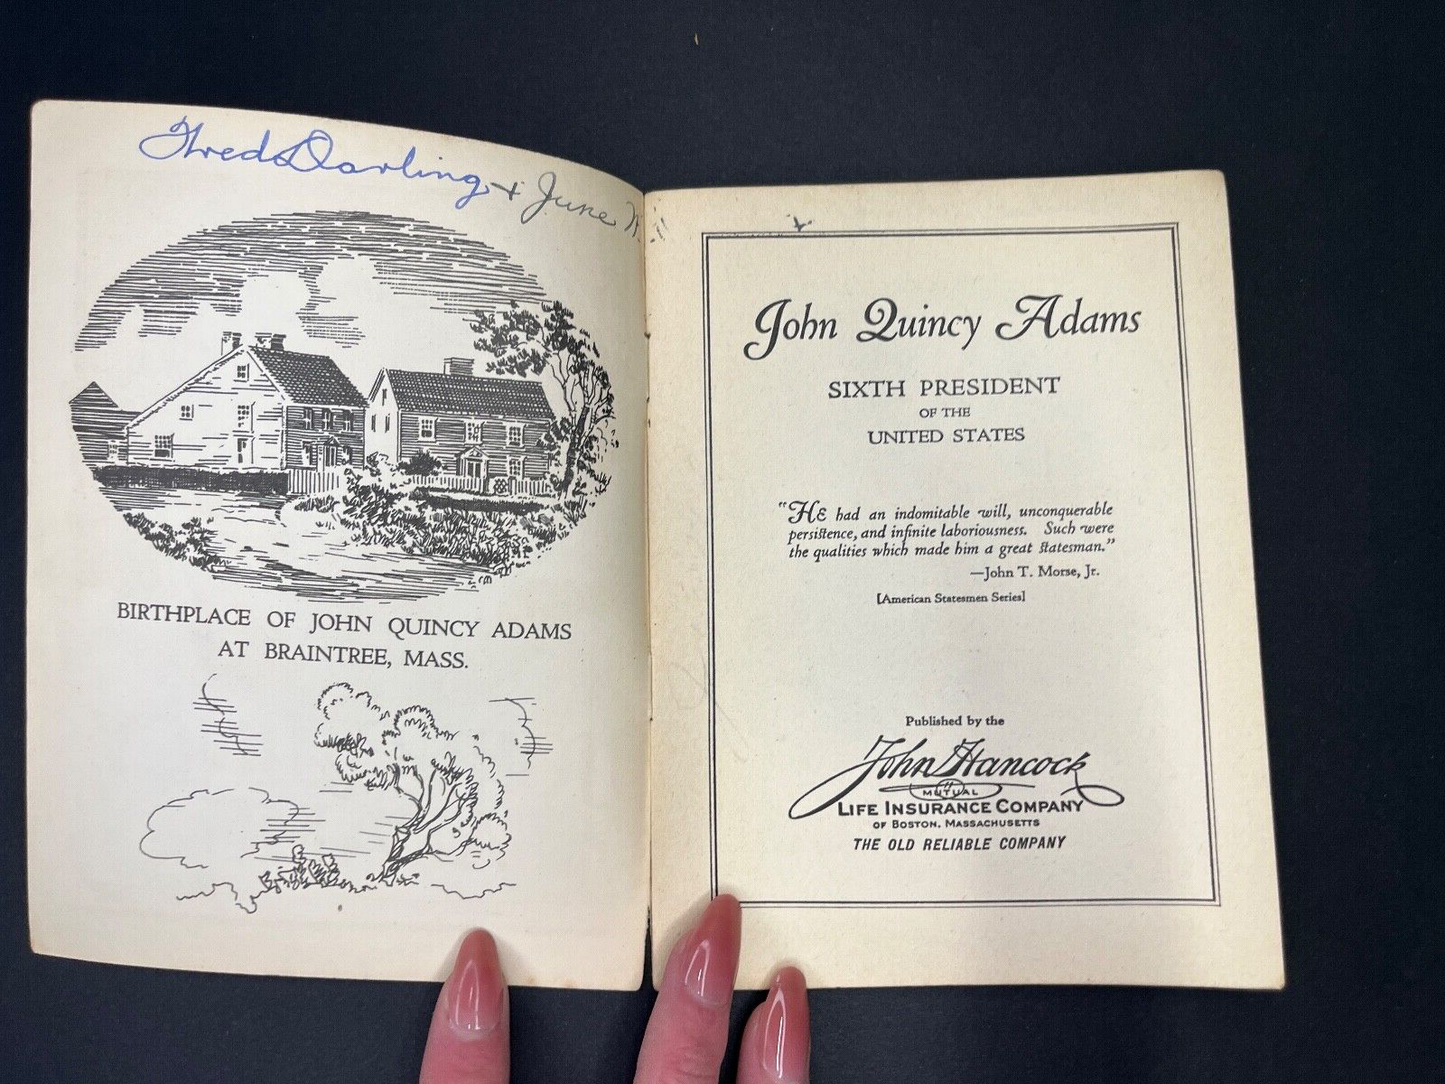 Fred Darling + June
BIRTHPLACE OF JOHN QUINCY ADAMS
AT BRAINTREE, MASS.
John Quincy Adams
SIXTH PRESIDENT
OF THE
UNITED STATES
"He had an indomitable will, unconquerable
persistence, and infinite laboriousness. Such were
the qualities which made him a great statesman."
—John T. Morse, Jr.
[American Statesmen Series]
Published by the
John Hancock
MUTUAL
LIFE INSURANCE COMPANY
OF BOSTON, MASSACHUSETTS
THE OLD RELIABLE COMPANY